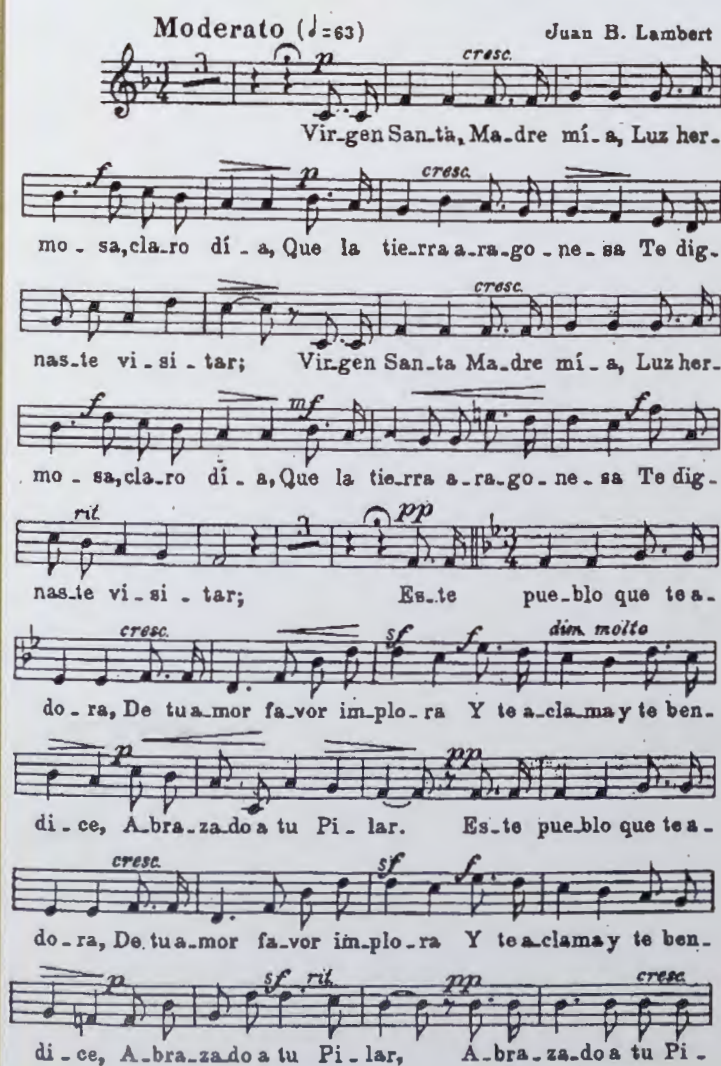 Moderato (♩=63) Juan B. Lambert
3 p cresc.
Vir-gen San-ta, Ma-dre mí-a, Luz her-
f p cresc.
mo-sa, cla-ro dí-a, Que la tie-rra a-ra-go-ne-sa Te dig-
cresc.
nas-te vi-si-tar; Vir-gen San-ta Ma-dre mí-a, Luz her-
f mf f
mo-sa, cla-ro dí-a, Que la tie-rra a-ra-go-ne-sa Te dig-
rit. 3 pp
nas-te vi-si-tar; Es-te pue-blo que te a-
cresc. sf f dim. molto
do-ra, De tu a-mor fa-vor im-plo-ra Y te a-cla-ma y te ben-
p pp
di-ce, A-bra-za-do a tu Pi-lar. Es-te pue-blo que te a-
cresc. sf f
do-ra, De tu a-mor fa-vor im-plo-ra Y te a-clama y te ben-
p sf rit. pp cresc.
di-ce, A-bra-za-do a tu Pi-lar, A-bra-za-do a tu Pi-